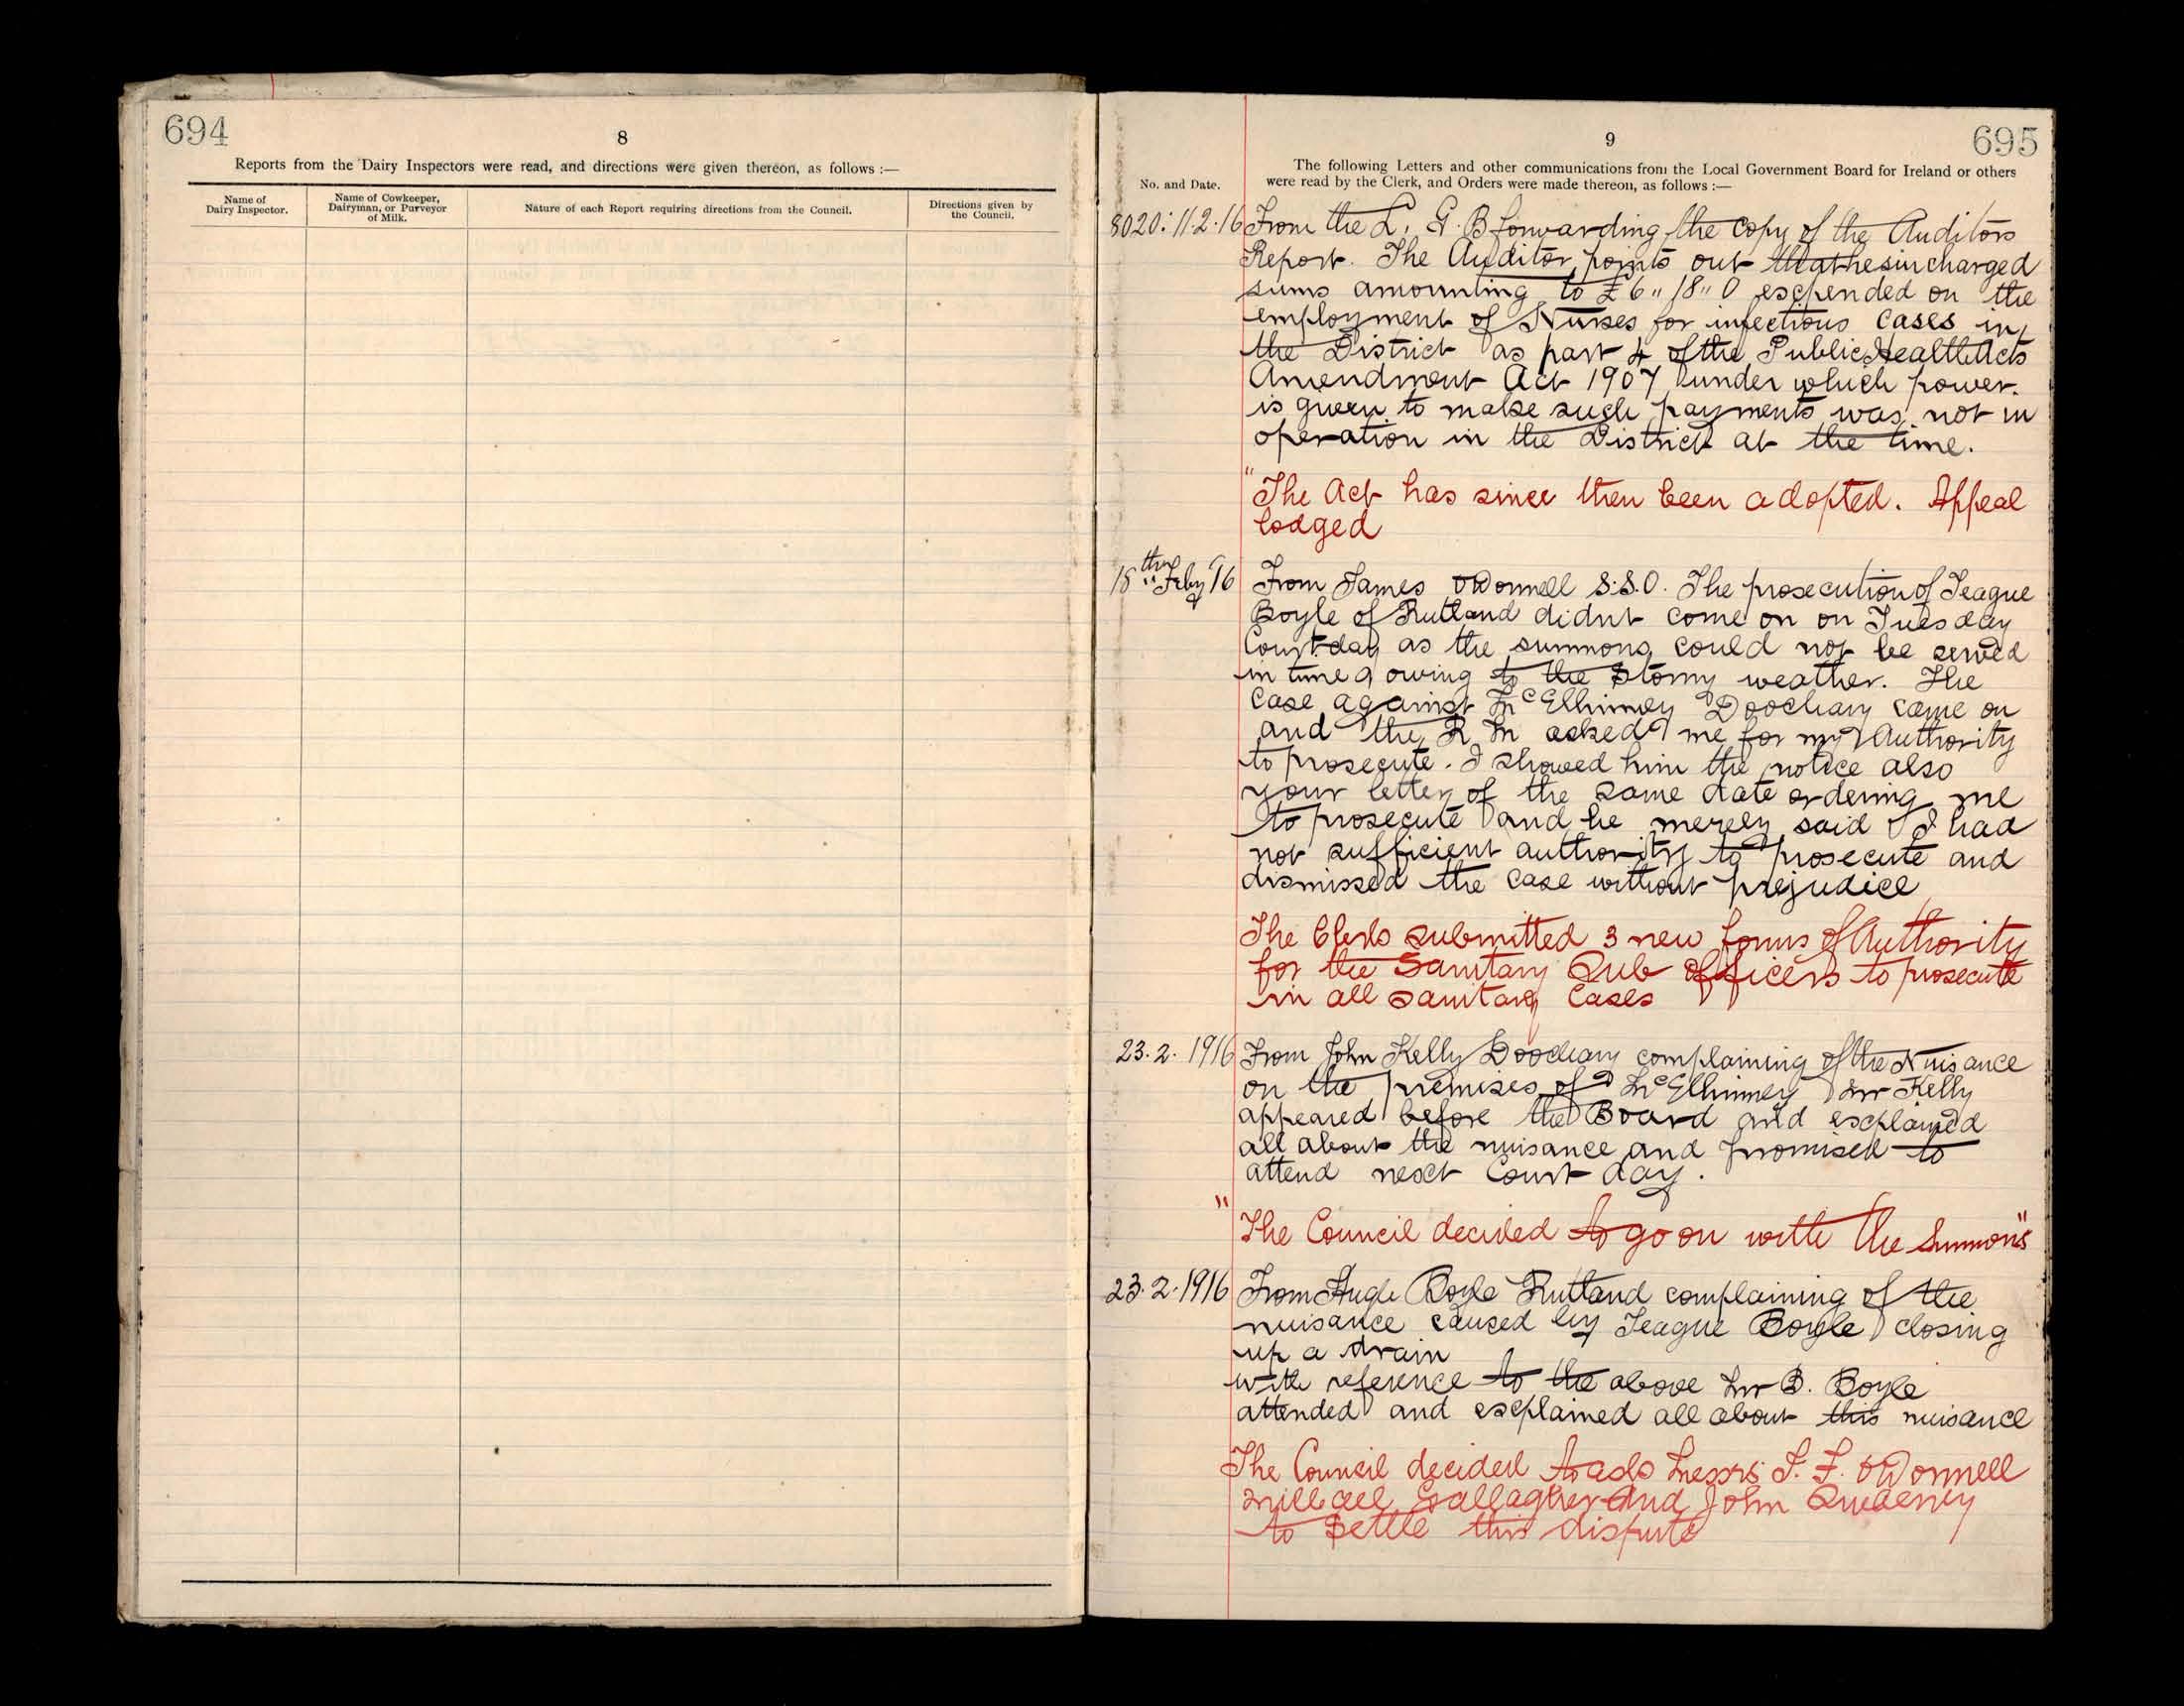 694
8
Reports from the Dairy Inspectors were read, and directions were given thereon, as follows :—
Name of
Dairy Inspector.
Name of Cowkeeper,
Dairyman, or Purveyor
of Milk.
Nature of each Report requiring directions from the Council.
Directions given by
the Council.
9
695
The following Letters and other communications from the Local Government Board for Ireland or others
were read by the Clerk, and Orders were made thereon, as follows :—
No. and Date.
8020: 11.2.16 From the L. G. B forwarding the copy of the Auditors
Report. The Auditor points out that he surcharged
sums amounting to £6" 18" 0 expended on the
employment of Nurses for infectious cases in
the District as part 4 of the Public Health Acts
Amendment Act 1907 under which power
is given to make such payments was not in
operation in the District at the time.
"The Act has since then been adopted. Appeal
lodged
18th Feby '16 From James O'Donnell S.S.O. The prosecution of Teague
Boyle of Rutland didnt come on on Tuesday
Court day as the summons could not be served
in time owing to the stomy weather. The
case against McElhinney Doochary came on
and the R M asked me for my Authority
to prosecute. I showed him the notice also
your letter of the same date ordering me
to prosecute and he merely said I had
not sufficient authority to prosecute and
dismissed the case without prejudice
The Clerk submitted 3 new forms of Authority
for the Sanitary Sub officers to prosecute
in all sanitary cases
23.2.1916 From John Kelly Doochary complaining of the Nuisance
on the premises of McElhinney Mr Kelly
appeared before the Board and explained
all about the nuisance and promised to
attend next Court day.
"The Council decided to go on with the Summons"
23.2.1916 From Hugh Boyle Rutland complaining of the
nuisance caused by Teague Boyle closing
up a drain
with reference to the above Mr B. Boyle
attended and explained all about this nuisance
The Council decided to ask Messrs J. F. O'Donnell
Michael Gallagher and John Sweeney
to settle this dispute